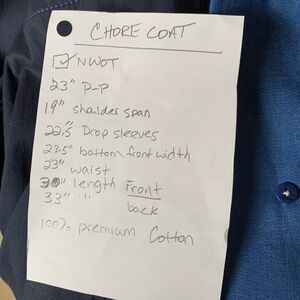 CHORE COAT
☑ NWOT
23" P-P
19" shoulder span
22.5" Drop sleeves
23.5" bottom front width
23" waist
30" length Front
33" " back
100% premium Cotton